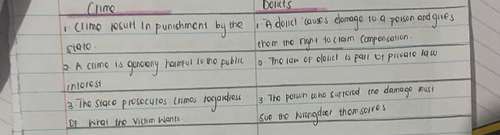 Crime
Delicts
1. Crime result in punishment by the
state.
2. A crime is generally harmful to the public
interest
3. The state prosecutes crimes regardless
of what the victim wants.
1. A delict causes damage to a person and gives
them the right to claim compensation.
2. The law of delict is part of private law
3. The person who suffered the damage must
sue the wrongdoer themselves